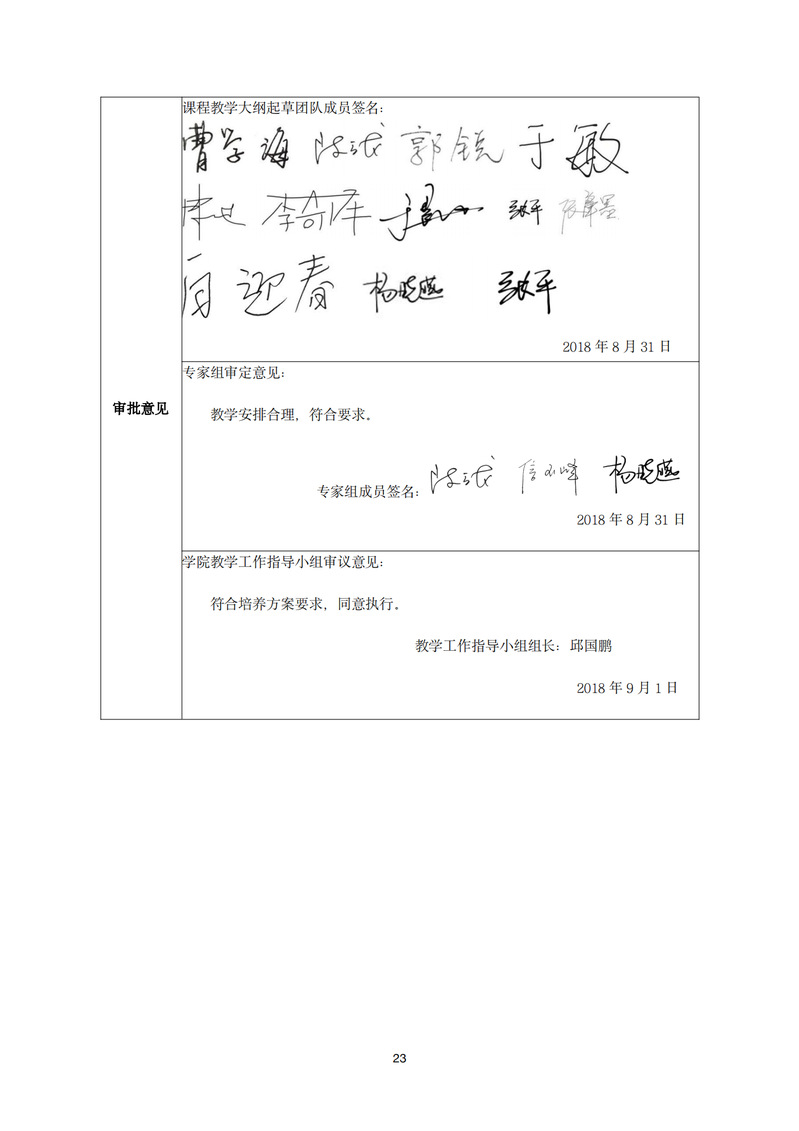 课程教学大纲起草团队成员签名:
曹学海 陈 郭锐 于敏
李奇泽 张平
闫迎春 杨晓燕 张平
2018 年 8 月 31 日
专家组审定意见:
审批意见
教学安排合理,符合要求。
专家组成员签名: 陈 信 峰 杨晓燕
2018 年 8 月 31 日
学院教学工作指导小组审议意见:
符合培养方案要求,同意执行。
教学工作指导小组组长: 邱国鹏
2018 年 9 月 1 日
23